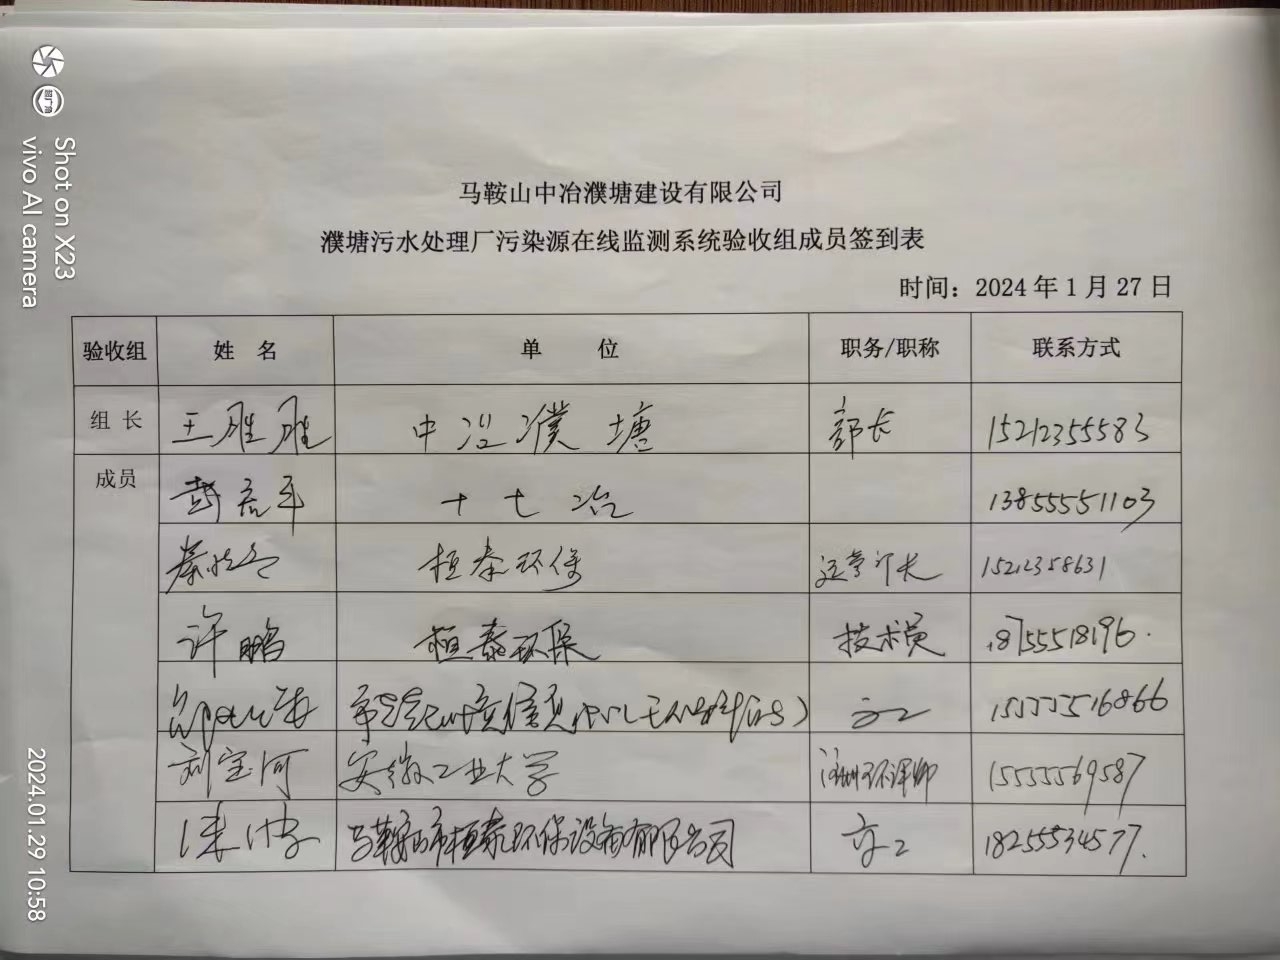 马鞍山中冶濮塘建设有限公司
濮塘污水处理厂污染源在线监测系统验收组成员签到表
时间：2024年1月27日
验收组 姓 名 单 位 职务/职称 联系方式
组 长 王胜胜 中冶濮塘 部长 15212355583
成员 十七冶 13855551103
秦 桓泰环保 运营厂长 15212358631
许鹏 桓泰环保 技术员 18755518196.
高工 15555516866
刘宝河 安徽工业大学 注册环评师 15555569587
马鞍山市桓泰环保设备有限公司 高工 18255534577.
Shot on X23
vivo AI camera
2024.01.29 10:58